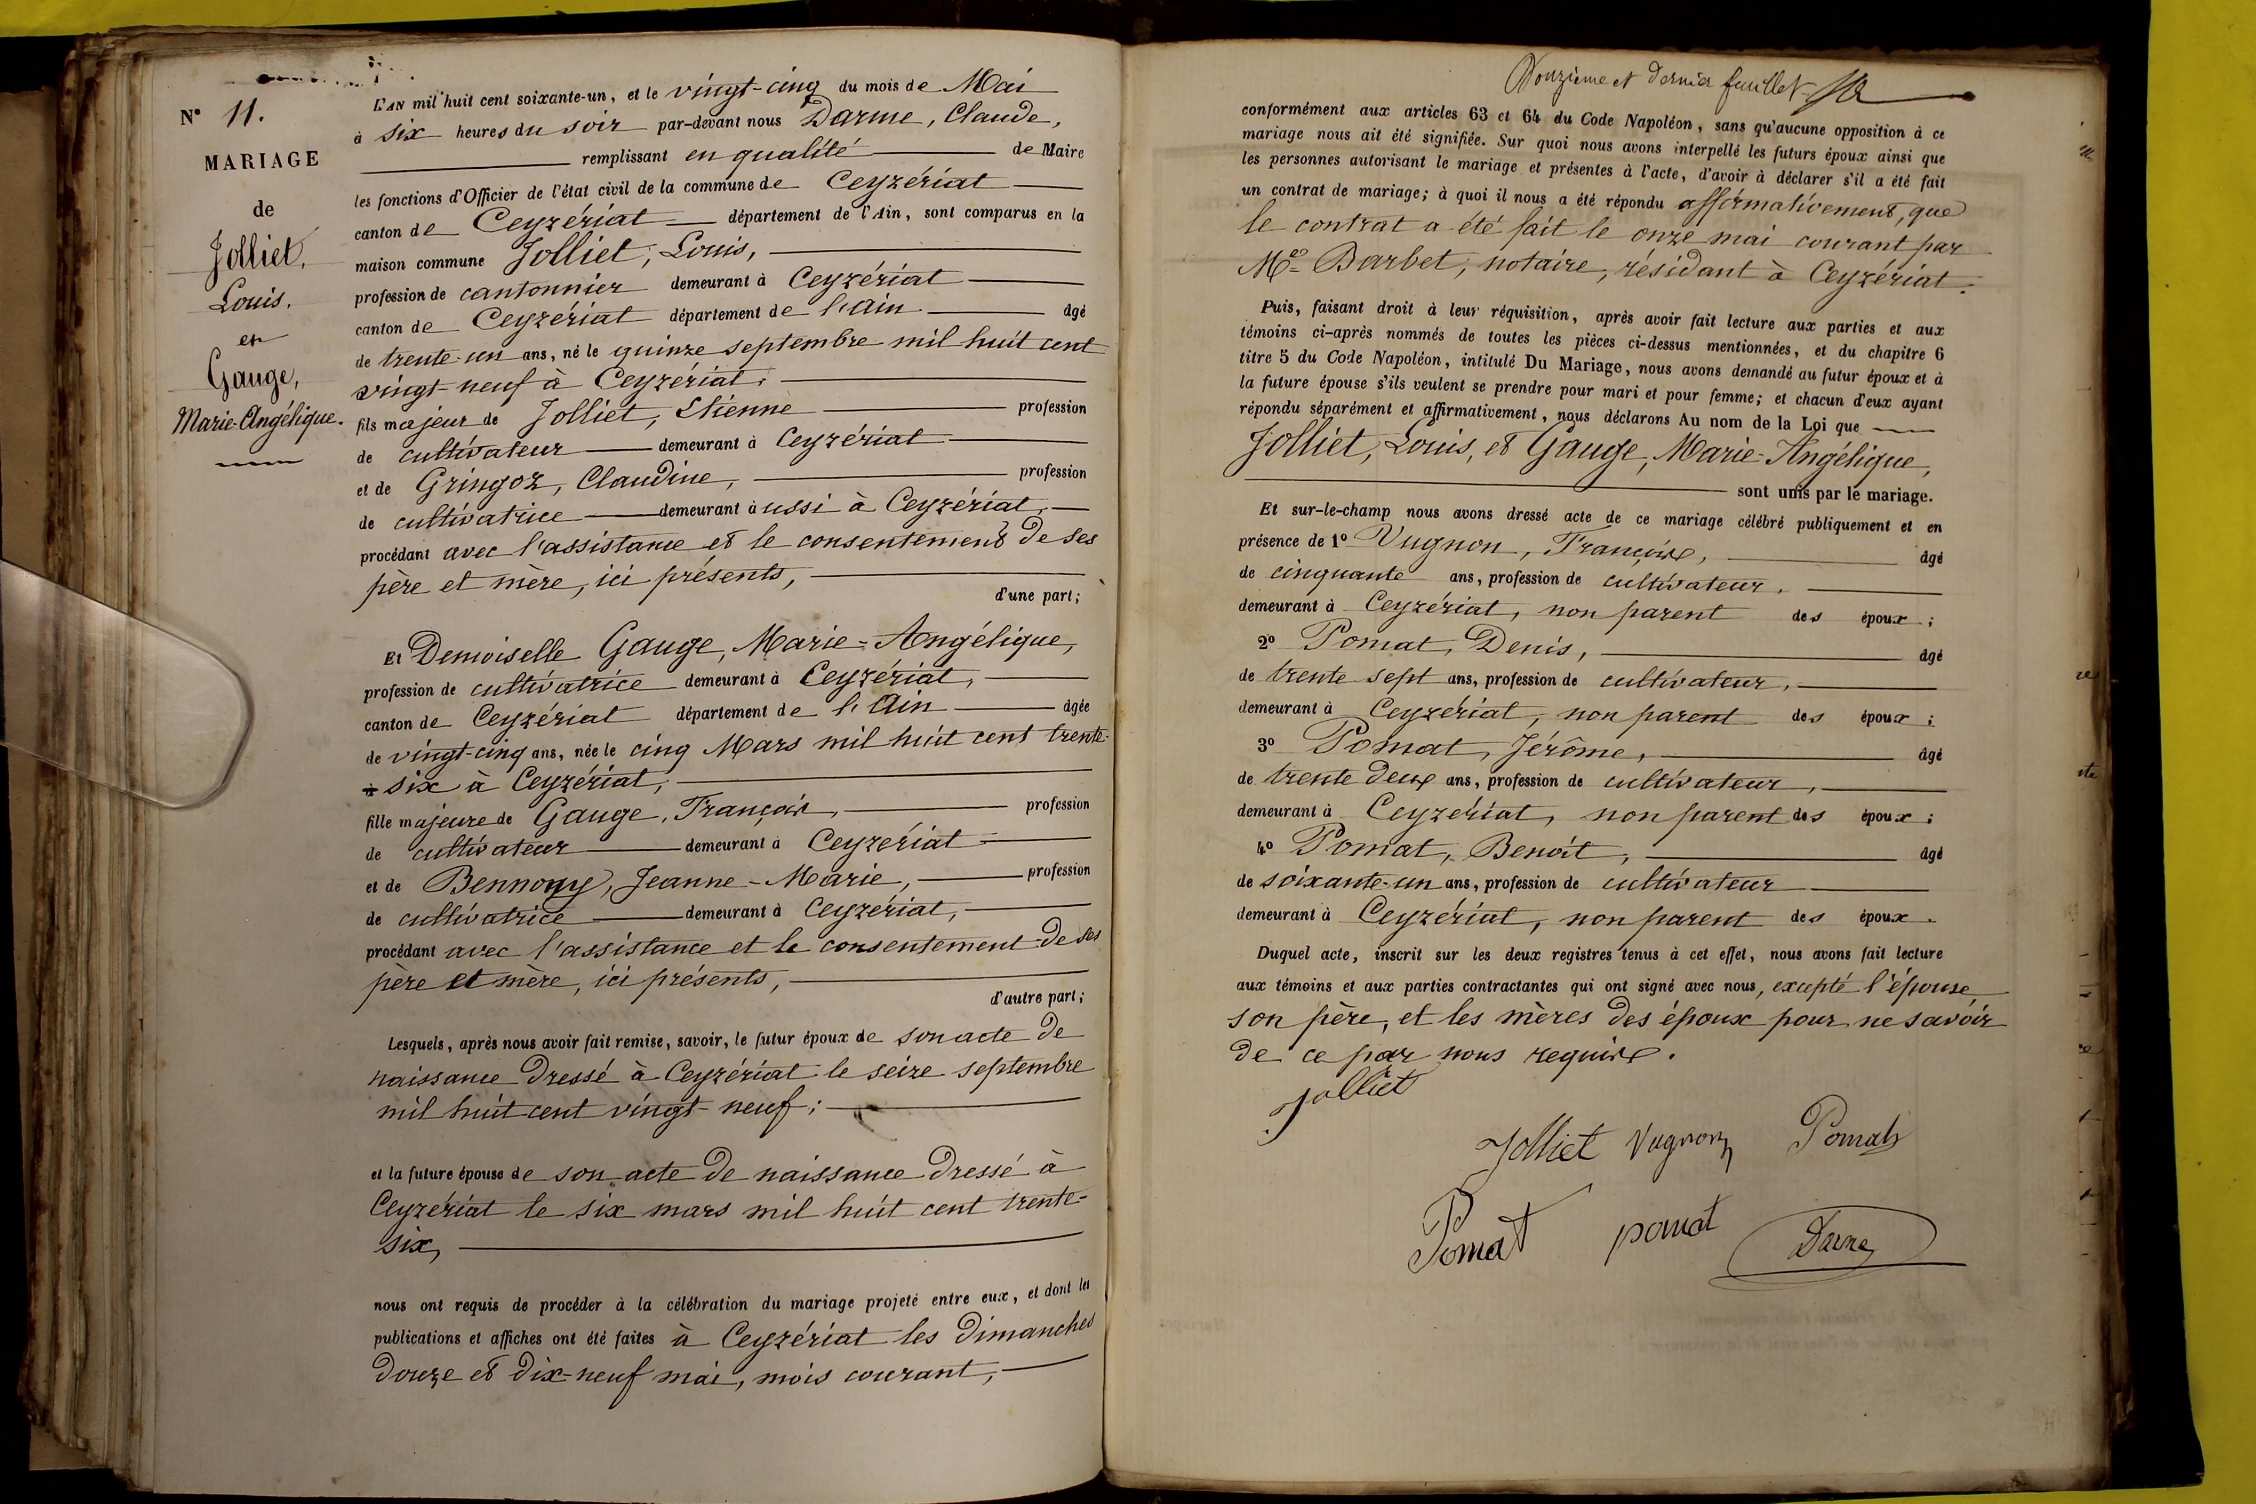 N° 11.
MARIAGE
de
Jolliet,
Louis.
et
Gauge,
Marie-Angélique.
L'AN mil huit cent soixante-un, et le vingt-cinq du mois de Mai
à six heures du soir par-devant nous Darme, Claude,
remplissant en qualité de Maire
les fonctions d'Officier de l'état civil de la commune de Ceyzériat
canton de Ceyzériat département de l'Ain, sont comparus en la
maison commune Jolliet, Louis,
profession de cantonnier demeurant à Ceyzériat
canton de Ceyzériat département de l'Ain âgé
de trente-un ans, né le quinze septembre mil huit cent
vingt-neuf à Ceyzériat,
fils majeur de Jolliet, Etienne profession
de cultivateur demeurant à Ceyzériat
et de Gringoz, Claudine, profession
de cultivatrice demeurant aussi à Ceyzériat,
procédant avec l'assistance et le consentement de ses
père et mère, ici présents,
d'une part;
Et Demoiselle Gauge, Marie-Angélique,
profession de cultivatrice demeurant à Ceyzériat,
canton de Ceyzériat département de l'Ain âgée
de vingt-cinq ans, née le cinq Mars mil huit cent trente-
six à Ceyzériat,
fille majeure de Gauge, François, profession
de cultivateur demeurant à Ceyzériat
et de Bennony, Jeanne-Marie, profession
de cultivatrice demeurant à Ceyzériat,
procédant avec l'assistance et le consentement de ses
père et mère, ici présents,
d'autre part;
Lesquels, après nous avoir fait remise, savoir, le futur époux de son acte de
naissance dressé à Ceyzériat le seize septembre
mil huit cent vingt-neuf;
et la future épouse de son acte de naissance dressé à
Ceyzériat le six mars mil huit cent trente-
six,
nous ont requis de procéder à la célébration du mariage projeté entre eux, et dont les
publications et affiches ont été faites à Ceyzériat les dimanches
douze et dix-neuf mai, mois courant,
Douzième et dernier feuillet
conformément aux articles 63 et 64 du Code Napoléon, sans qu'aucune opposition à ce
mariage nous ait été signifiée. Sur quoi nous avons interpellé les futurs époux ainsi que
les personnes autorisant le mariage et présentes à l'acte, d'avoir à déclarer s'il a été fait
un contrat de mariage; à quoi il nous a été répondu affirmativement, que
le contrat a été fait le onze mai courant par
Me Barbet, notaire, résidant à Ceyzériat.
Puis, faisant droit à leur réquisition, après avoir fait lecture aux parties et aux
témoins ci-après nommés de toutes les pièces ci-dessus mentionnées, et du chapitre 6
titre 5 du Code Napoléon, intitulé Du Mariage, nous avons demandé au futur époux et à
la future épouse s'ils veulent se prendre pour mari et pour femme; et chacun d'eux ayant
répondu séparément et affirmativement, nous déclarons Au nom de la Loi que
Jolliet, Louis, et Gauge, Marie-Angélique,
sont unis par le mariage.
Et sur-le-champ nous avons dressé acte de ce mariage célébré publiquement et en
présence de 1° Vugnon, François, âgé
de cinquante ans, profession de cultivateur,
demeurant à Ceyzériat, non parent des époux;
2° Pomat, Denis, âgé
de trente sept ans, profession de cultivateur,
demeurant à Ceyzériat, non parent des époux;
3° Pomat, Jérôme, âgé
de trente deux ans, profession de cultivateur,
demeurant à Ceyzériat, non parent des époux;
4° Pomat, Benoît, âgé
de soixante-un ans, profession de cultivateur
demeurant à Ceyzériat, non parent des époux.
Duquel acte, inscrit sur les deux registres tenus à cet effet, nous avons fait lecture
aux témoins et aux parties contractantes qui ont signé avec nous, excepté l'épouse
son père, et les mères des époux pour ne savoir
de ce par nous requis.
jolliet
Jolliet Vugnon Pomat
Pomat pomat Darme